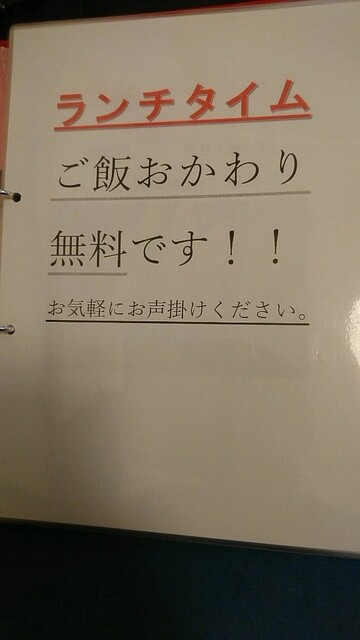 ランチタイム
ご飯おかわり
無料です！！
お気軽にお声掛けください。